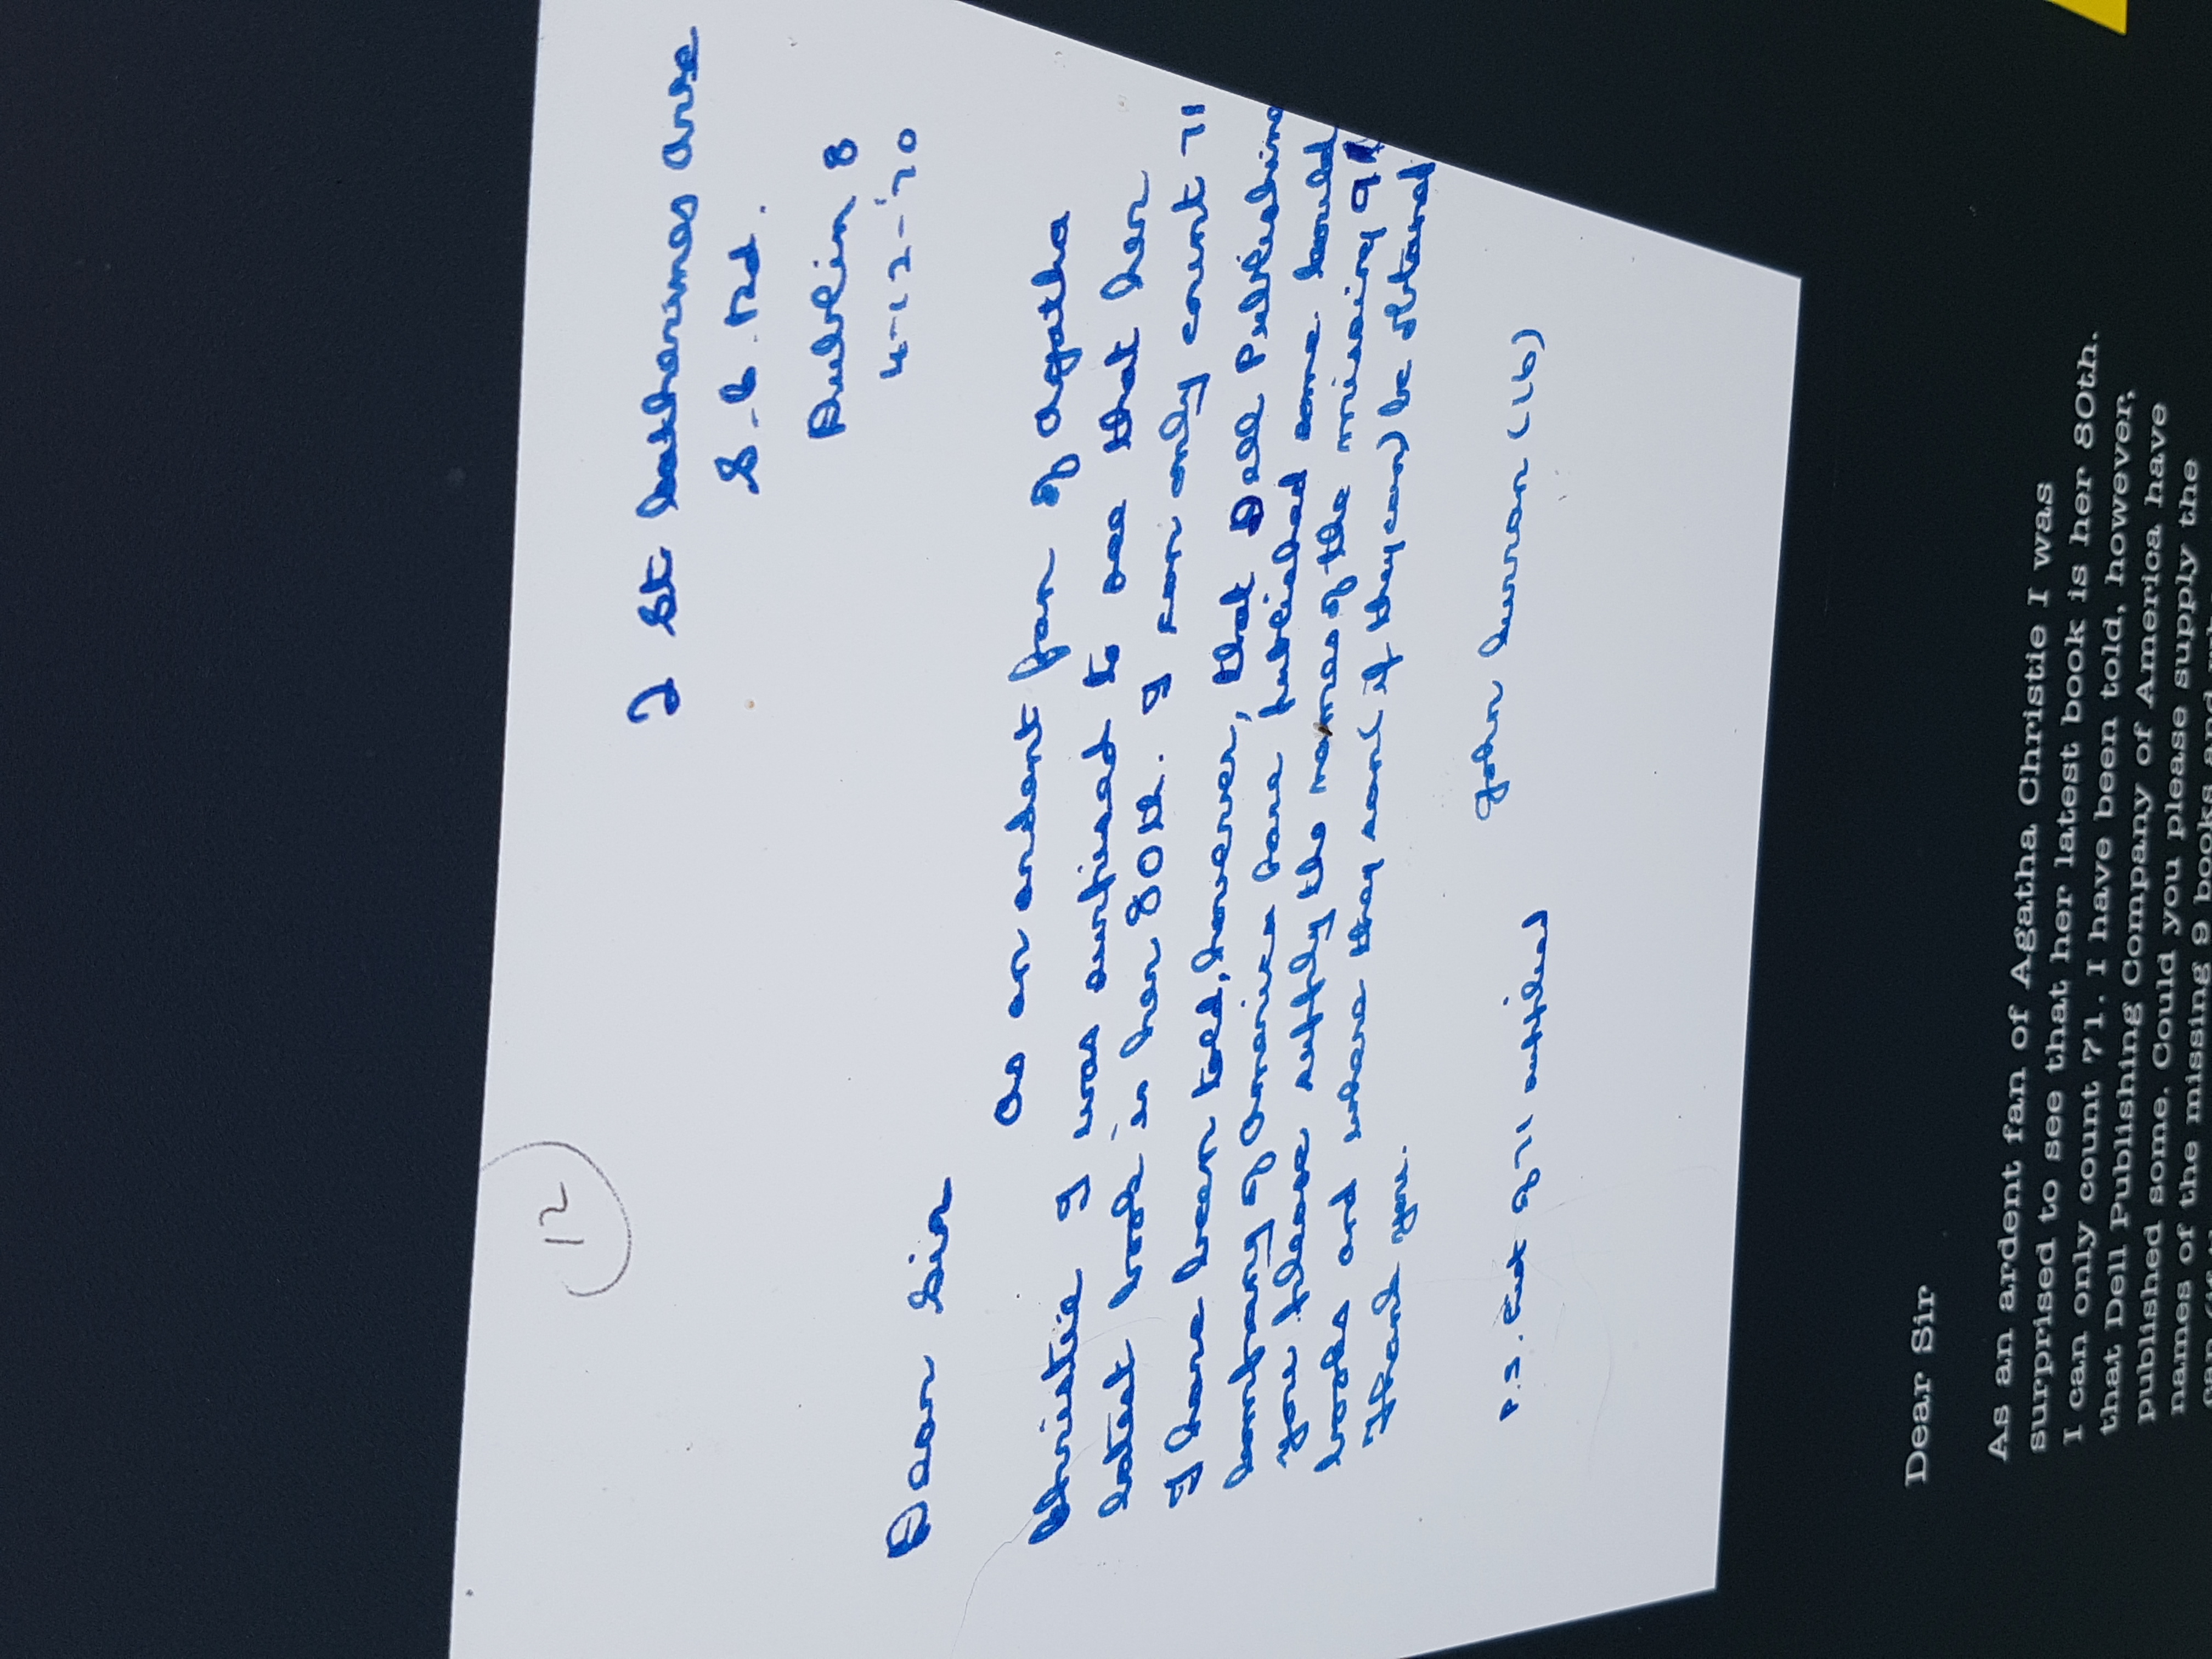 12
2 St Catherines Ave
S.C.Rd.
Dublin 8
4-12-'70
Dear Sir
As an ardent fan of Agatha
Christie I was surprised to see that her
latest book is her 80th. I can only count 71
I have been told, however, that Dell Publishing
Company of America have published some. Could
you please supply the names of the missing 9
books and where they can (if they can) be obtained
Thank you.
John Curran (16)
P.S. List of 71 supplied
Dear Sir
As an ardent fan of Agatha Christie I was
surprised to see that her latest book is her 80th.
I can only count 71. I have been told, however,
that Dell Publishing Company of America have
published some. Could you please supply the
names of the missing 9 books and